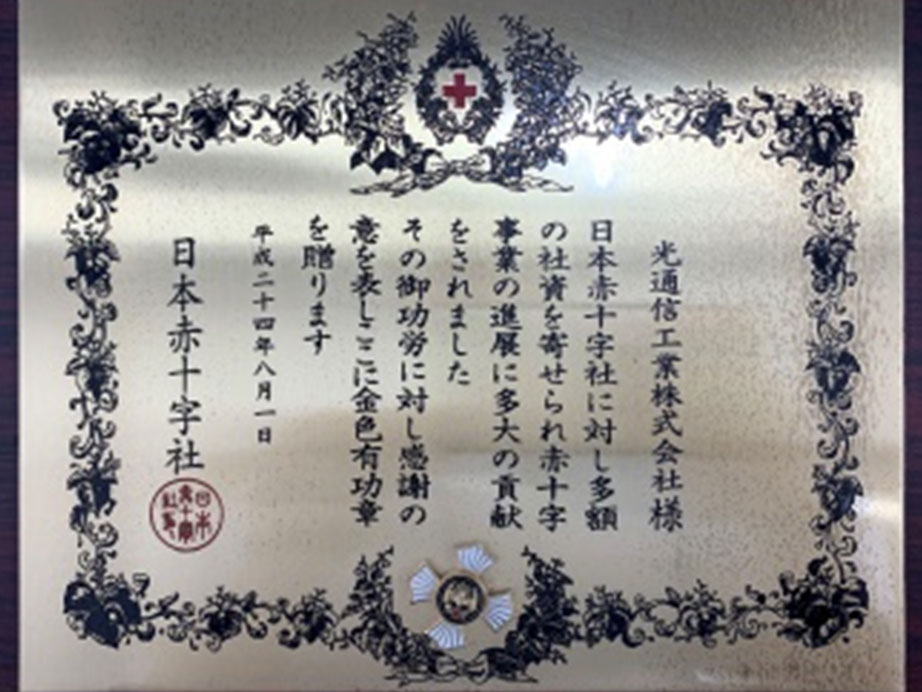 光通信工業株式会社様
日本赤十字社に対し多額
の社資を寄せられ赤十字
事業の進展に多大の貢献
をされました
その御功労に対し感謝の
意を表しここに金色有功章
を贈ります
平成二十四年八月一日
日本赤十字社